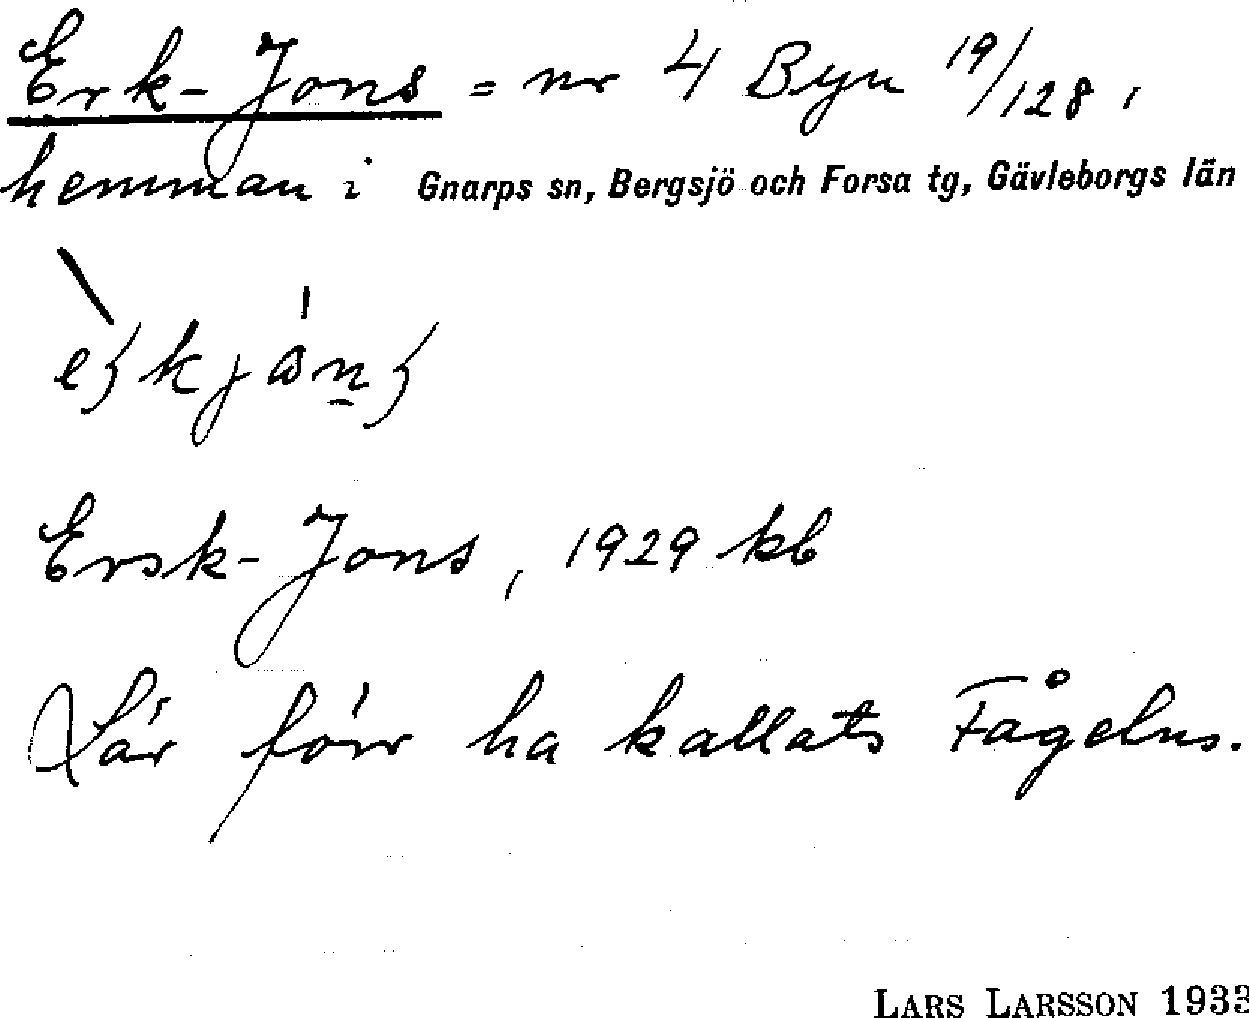 Erk-Jons = nr 4 Byn 19/128,
hemman i Gnarps sn, Bergsjö och Forsa tg, Gävleborgs län
Ersk-Jons, 1929 kb
Lär förr ha kallats Fågelns.
LARS LARSSON 1933